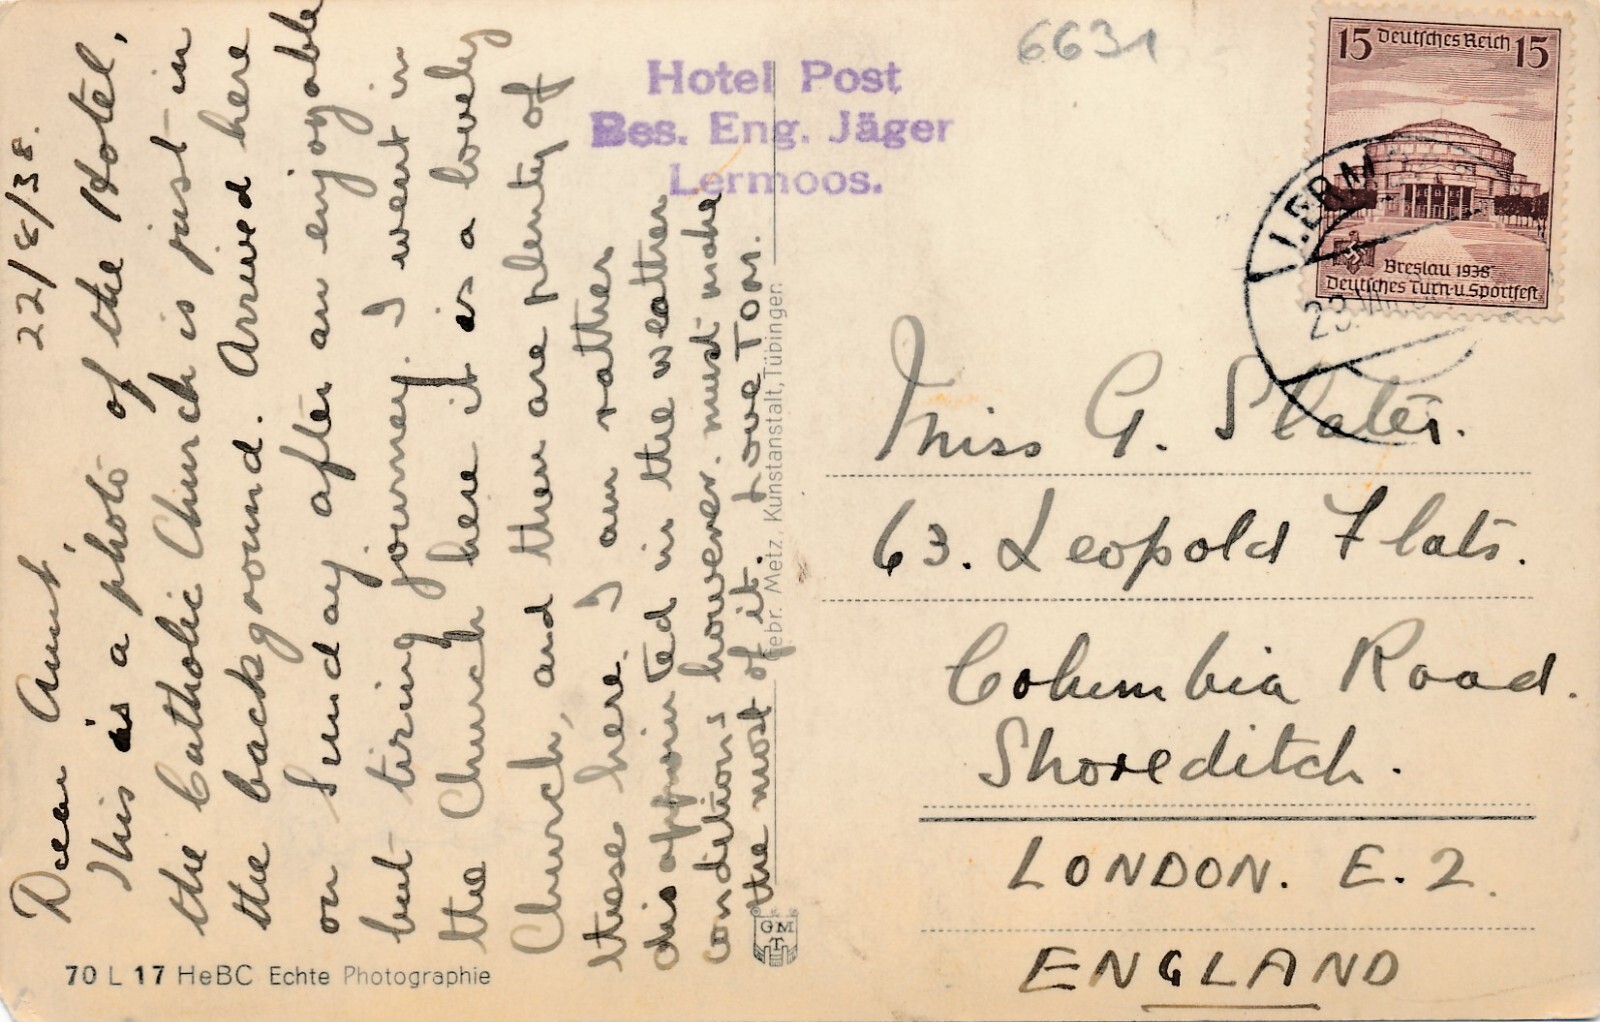 22/8/38.
Dear Aunt,
This is a photo of the Hotel,
the Catholic Church is just in
the background. Arrived here
on Sunday after an enjoyable
but tiring journey. I went in
the Church here it is a lovely
Church, and there are plenty of
these here. I am rather
disappointed in the weather
conditions however. must make
the most of it. Love TOM.
70 L 17 HeBC Echte Photographie
Gebr. Metz, Kunstanstalt, Tübingen
GMT
Hotel Post
Bes. Eng. Jäger
Lermoos.
6631
15 Deutsches Reich 15
Breslau 1938
Deutsches Turn-u.Sportfest
LERM
23.VIII.
Miss G. Slater.
63. Leopold Flats.
Columbia Road.
Shoreditch.
LONDON. E.2.
ENGLAND